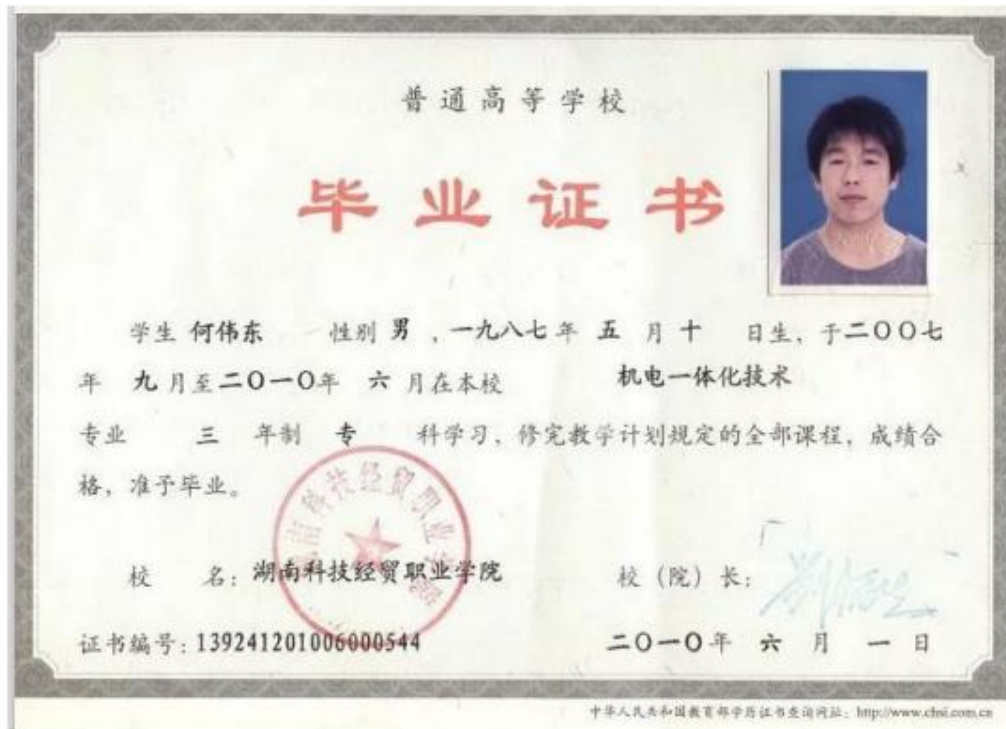 普通高等学校
毕业证书
学生 何伟东 性别 男 ，一九八七年 五 月 十 日生，于二〇〇七
年 九 月至二〇一〇年 六 月在本校 机电一体化技术
专业 三 年制 专 科学习，修完教学计划规定的全部课程，成绩合
格，准予毕业。
校 名：湖南科技经贸职业学院
校（院）长：
证书编号：139241201006000544
二〇一〇年 六 月 一 日
湖南科技经贸职业学院
中华人民共和国教育部学历证书查询网址：http://www.chsi.com.cn